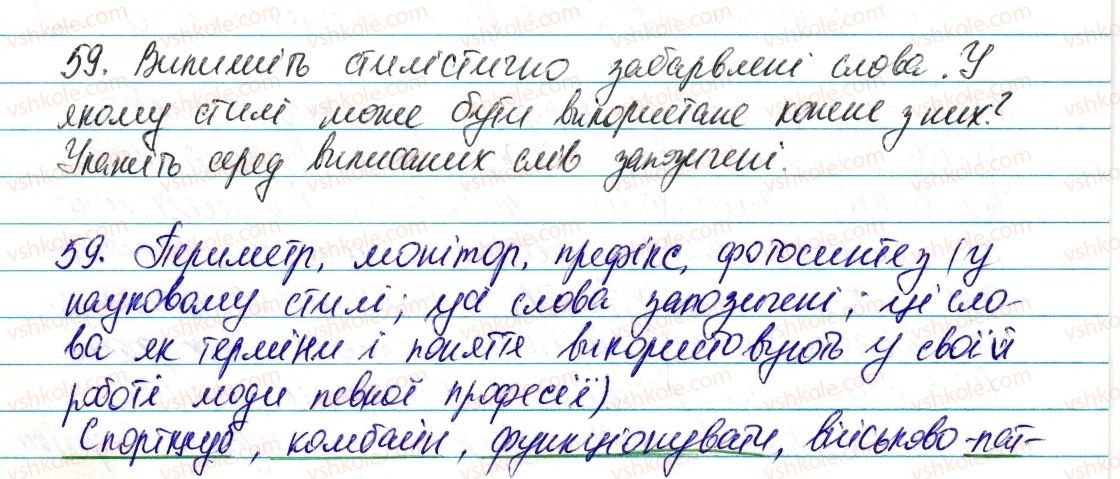 59. Випишіть стилістично забарвлені слова. У
якому стилі може бути використане кожне з них?
Укажіть серед виписаних слів запозичені.
59. Периметр, монітор, префікс, фотосинтез (у
науковому стилі; ці слова запозичені; ці сло-
ва як терміни і поняття використовують у своїй
роботі люди певної професії)
Спортклуб, комбайн, функціонувати, військово-пат-